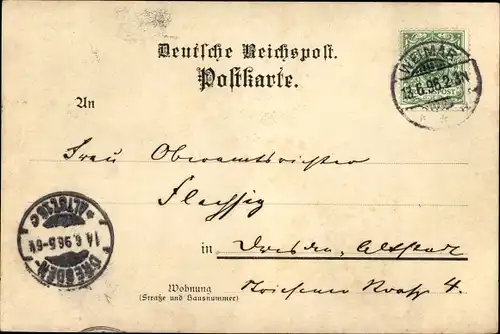 Deutsche Reichspost.
Postkarte.
WEIMAR
13.6.96.2-3N
An
Frau Oberamtsrichter
Flechsig
in Dresden, Altstadt
Wohnung
(Straße und Hausnummer)
4.
DRESDEN-
14.6.96.5-6N
* ALTST.16 c